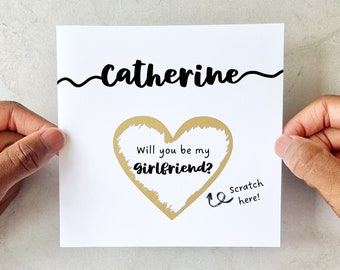 Catherine
Will you be my
girlfriend?
Scratch
here!